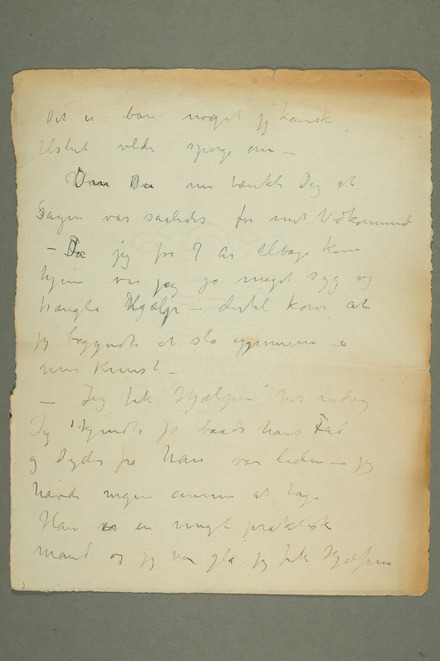 Det er bare noget jeg kanske
tilslut vilde spørge om –
Du nu tænkte Dig at
Sagen var saaledes for mit Vedkommende
– Da jeg for 7 Ar tilbage kom
hjem var jeg jo meget syg og
trængte Hjælp – dertil kom at
jeg begyndte at slå igjennem
min Kunst –
– Jeg fik "Hjælpen" hos
Jeg kjendte jo baade hans
og fra han var liden – jeg
havde ingen anden at tage
Han var en meget praktisk
mand og jeg var glad jeg fik Hjælpen